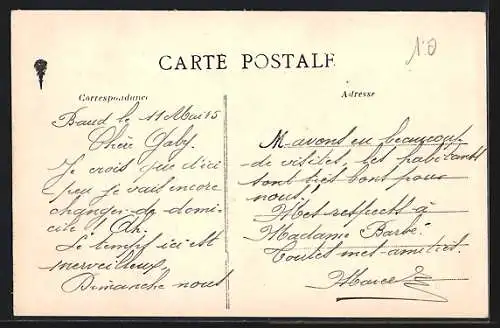 1.0
CARTE POSTALE
Correspondance
Adresse
Baud le 11 Mai 15
Chère Gaby.
Je crois que d'ici
peu je vais encore
changer de domi-
cile! Ah.
Le temps ici est
merveilleux.
Dimanche nous
N-avons eu beaucoup
de visites, les habitants
sont très bons pour
nous!
Mes respects à
Madame Barbé.
Toutes mes amitiés.